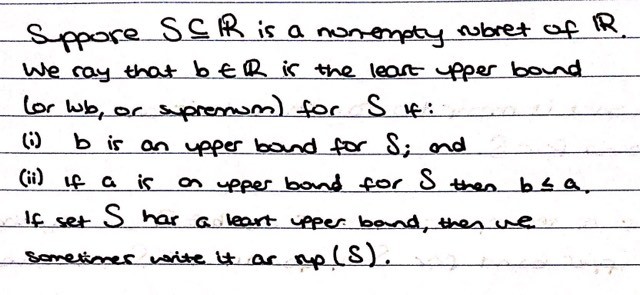 Suppose S ⊆ ℝ is a nonempty subset of ℝ.
We say that b ∈ ℝ is the least upper bound
(or lub, or supremum) for S if:
(i) b is an upper bound for S; and
(ii) if a is an upper bound for S then b ≤ a.
If set S has a least upper bound, then we
sometimes write it as sup (S).